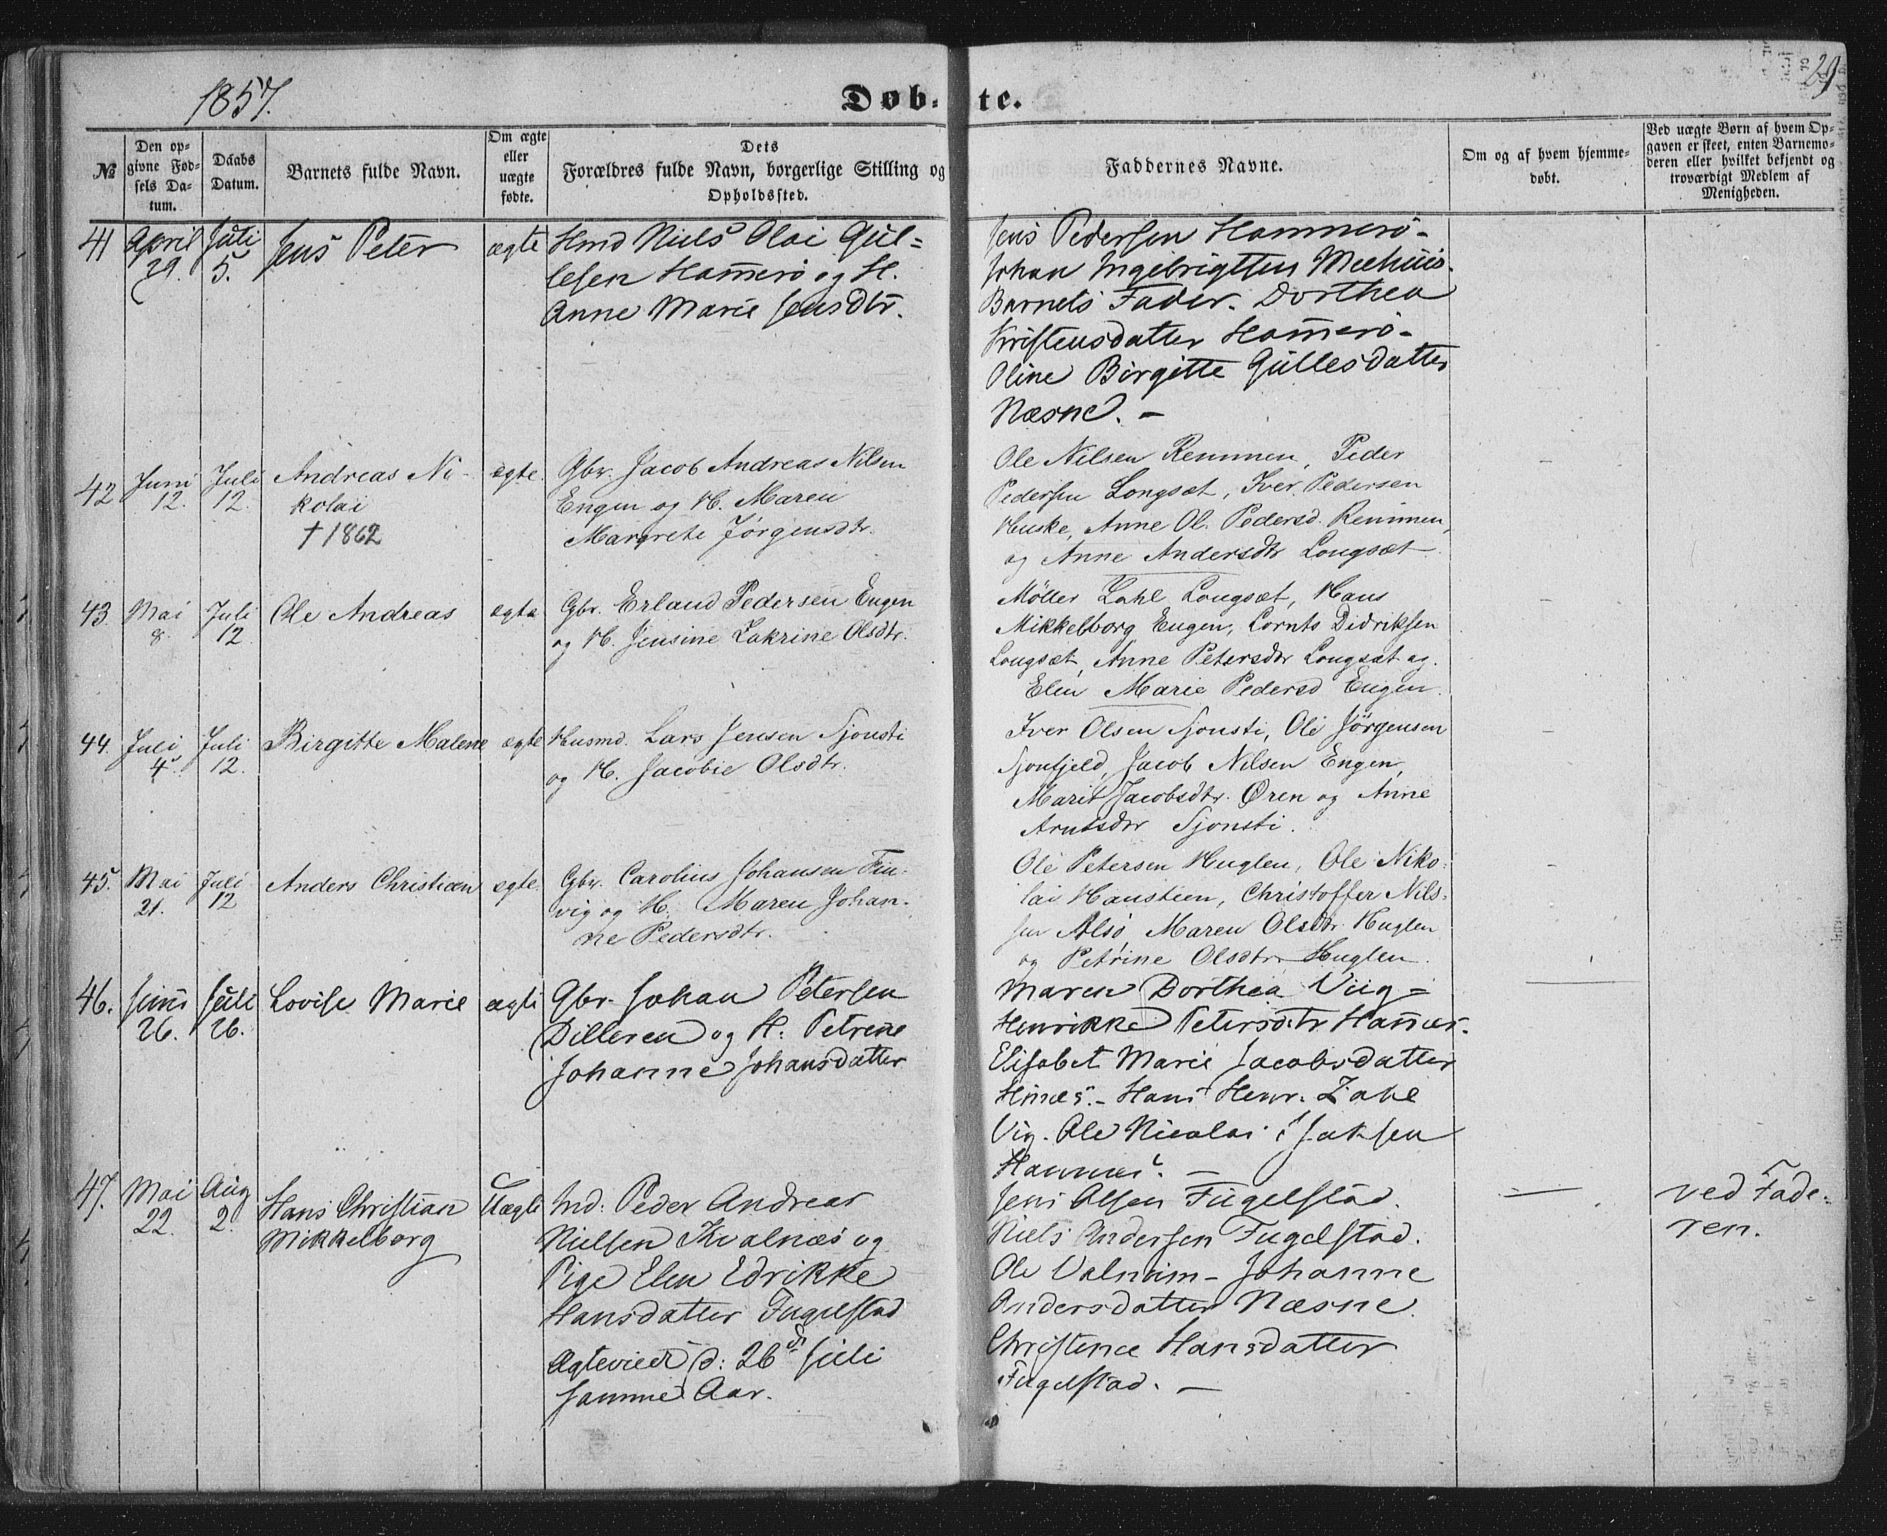 1857.
Døb-
te.
29
№
Den op-
givne Fød-
sels Da-
tum.
Daabs
Datum.
Barnets fulde Navn.
Om ægte
eller
uægte
fødte.
Dets
Forældres fulde Navn, borgerlige Stilling og
Opholdssted.
Faddernes Navne.
Om og af hvem hjemme-
døbt.
Ved uægte Børn af hvem Op-
gaven er skeet, enten Barnemo-
deren eller hvilket bekjendt og
troværdigt Medlem af
Menigheden.
41
April
29.
Juli
5.
Jens Peter
ægte
Hmd Niels Olai Gul-
lesen Hammerø og H.
Anne Marie Jensdtr.
Jens Pedersen Hammerø-
Johan Ingebrigtsen
Barnets Fader. Dorthea
Kristensdatter Hammerø-
Oline Birgitte Gullesdatter
Næsne. -
42
Juni
12.
Juli
12.
Andreas Ni-
kolai
† 1862
ægte.
Gbr. Jacob Andreas Nilsen
Engen og H. Maren
Margrete Jørgensdtr.
Ole Nilsen Remmen, Peder
Pedersen Longsæt, Iver Pedersen
Huske, Anne Ol. Pedersd. Remmen,
og Anne Andersdtr Longsæt
43
Mai
8.
Juli
12.
Ole Andreas
ægte
Gbr. Erland Pedersen Engen
og H. Jensine Zakrine Olsdtr.
Møller Zahl Longsæt, Hans
Mikkelborg Engen, Lornts Didriksen
Longsæt, Anne Petersdtr Longsæt og.
Elen Marie Pedersd Engen.
44.
Juli
4.
Juli
12.
Birgitte Malene
ægte
Husmd. Lars Jensen Sjonsti
og H. Jacobie Olsdtr.
Iver Olsen Sjonsti, Ole Jørgensen
Sjonfjeld, Jacob Nilsen Engen,
Marit Jacobsdtr. Øren og Anne
Arntsdtr Sjonsti.
45.
Mai
21.
Juli
12
Anders Christian
ægte.
Gbr. Carolius Johansen Fin-
vig og H. Maren Johan-
ne Pedersdtr.
Ole Petersen Huglen, Ole Niko-
lai Hanstien, Christoffer Nils-
sen Alsø Maren Olsdtr. Huglen
og Petrine Olsdtr. Huglen.
46.
Juni
26.
Juli
26.
Lovise Marie
ægte
Gbr. Johan Petersen
Dilleren og H: Petrine
Johanne Johansdatter
Maren Dorthea Viig-
Henrikke Petersdtr
Elisabet Marie Jacobsdatter
Hans Henr. Zahl
Vig. Ole Nicolai Isaksen
47.
Mai
22.
Aug
2.
Hans Christian
Mikkelborg
Uægte
Ind: Peder Andreas
Nielsen Kvalnæs og
Pige Elen Edrikke
Hansdatter Fugelstad
Ægteviede d: 26de Juli
samme Aar.
Jens Olsen Fugelstad.
Niels Andersen Fugelstad.
Ole Valneim- Johanne
Andersdatter Næsne.
Christence Hansdatter
Fugelstad. -
ved Fade-
ren.